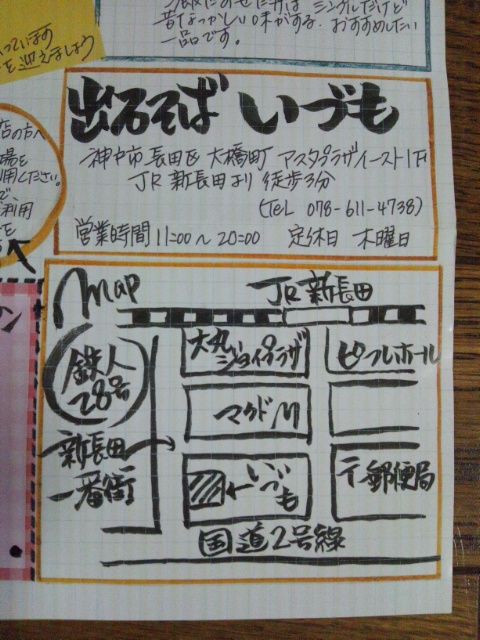 シンプルだけど
昔なつかしい味がする。おすすめしたい
一品です。
っています
を迎えましょう
出石そば いづも
神戸市長田区 大橋町 アスタプラザイースト1F
JR新長田より 徒歩3分
(TEL 078-611-4738)
営業時間 11:00～20:00 定休日 木曜日
店の方へ
場を
用ください。
で、
利用
を
Map
JR新長田
大丸
ジョイプラザ
ピフルホール
鉄人
28号
マクド
新長田
一番街
いづも
〒郵便局
国道2号線
ン